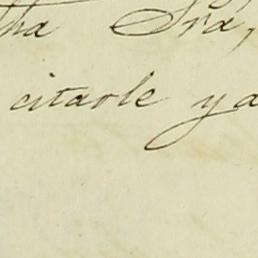 tha Sra,
citarle ya